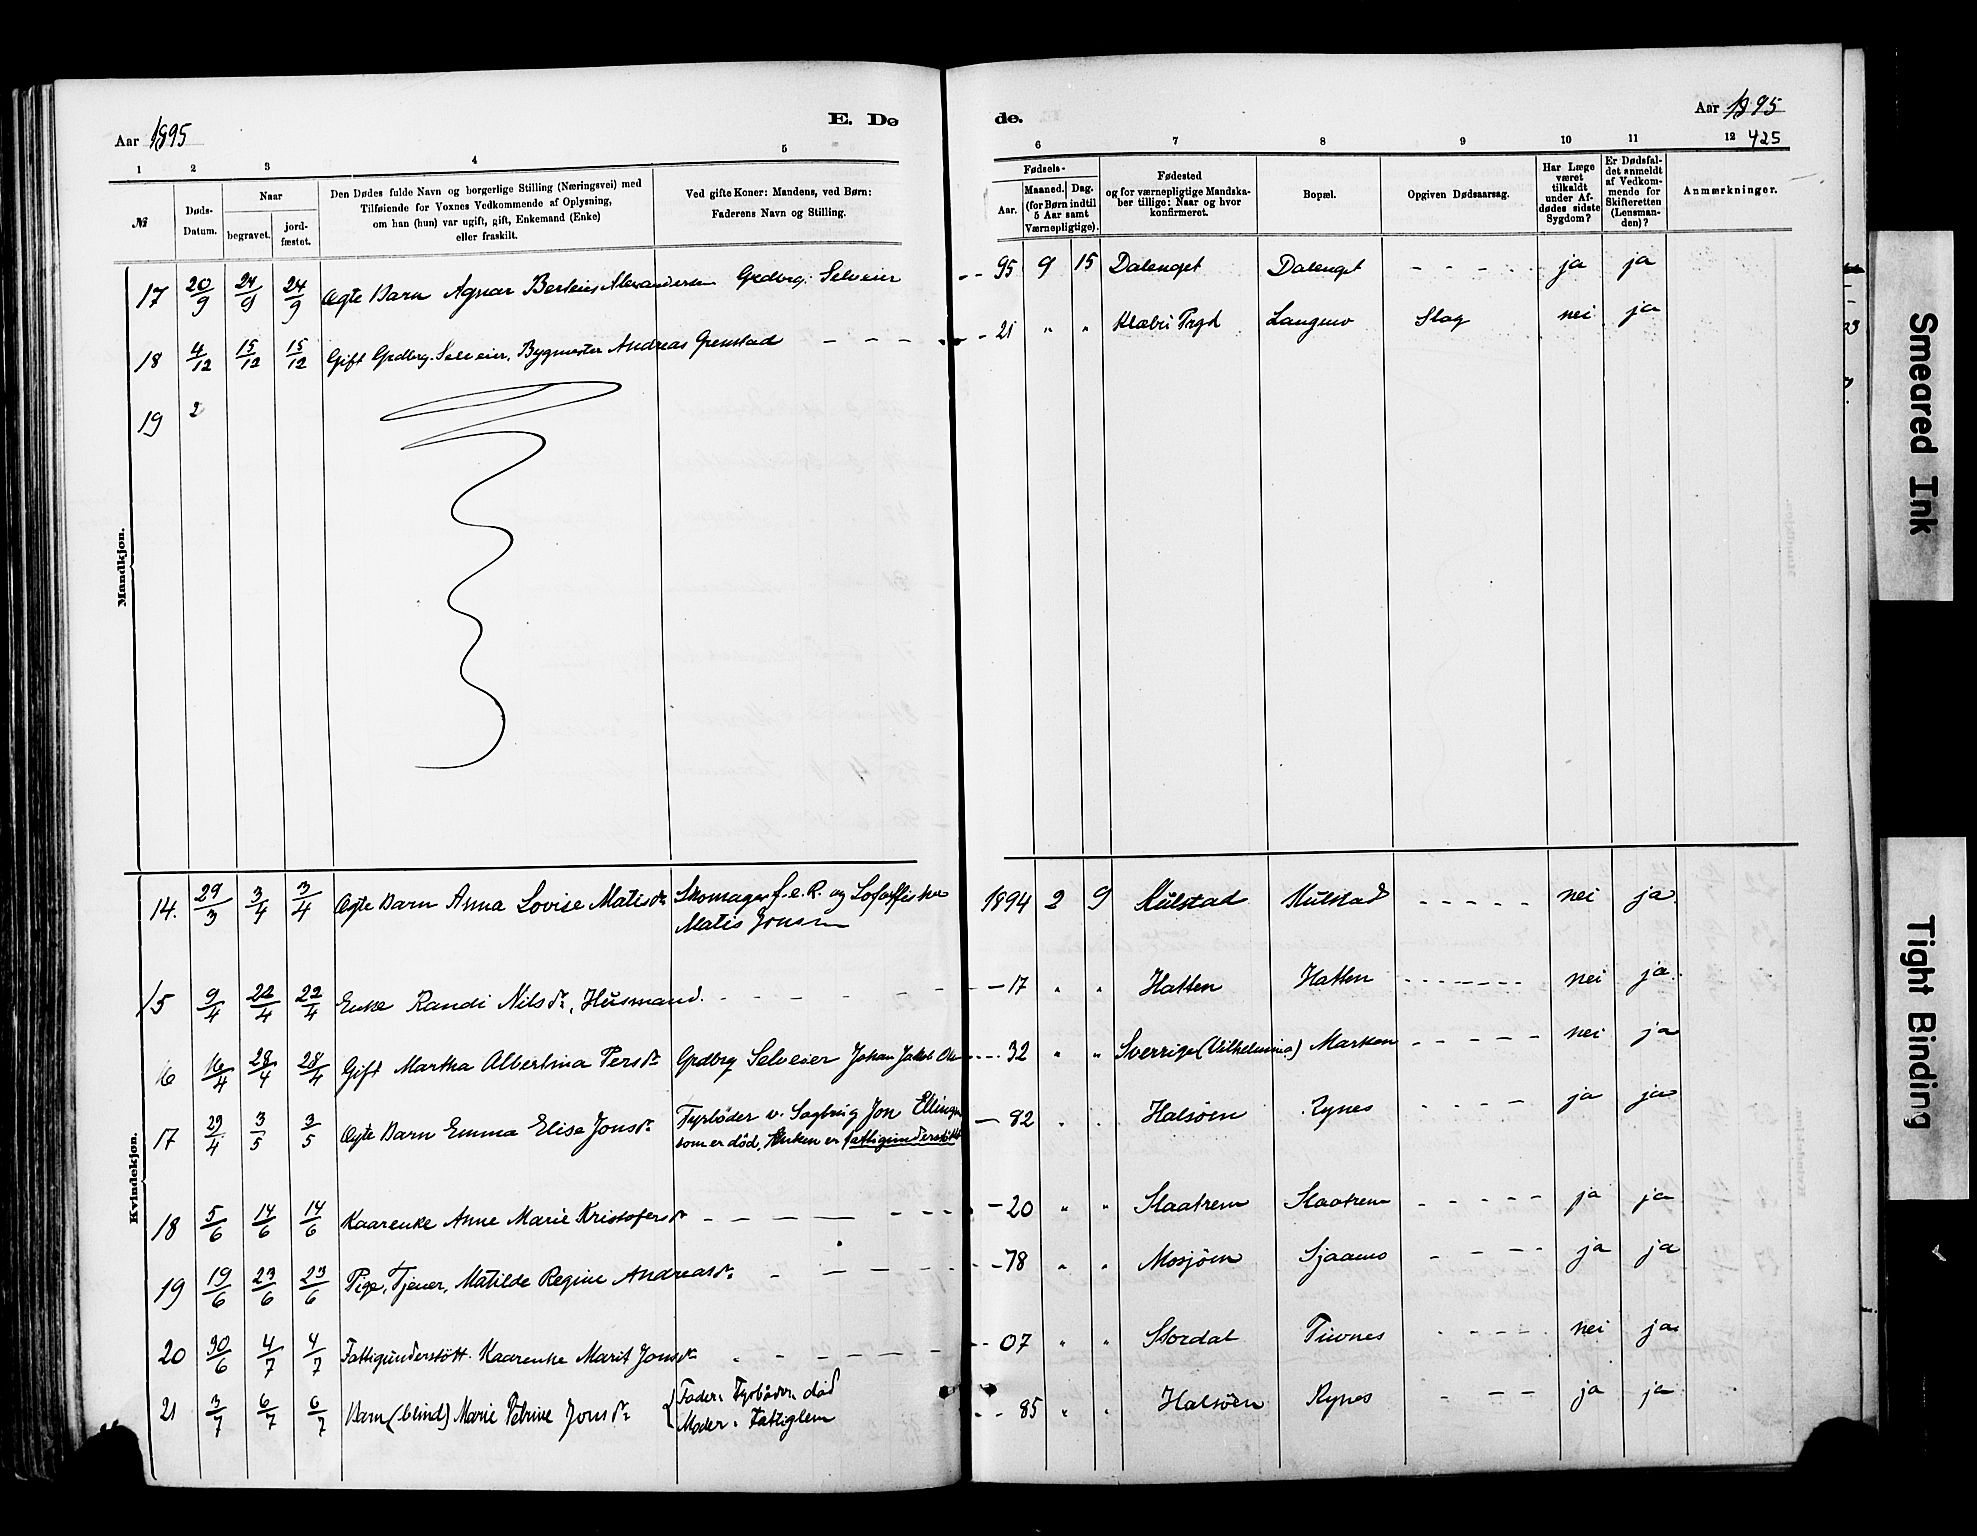 Aar 1895
E. Dø
de.
Aar 1895
1 2 3 4 5
6 7 8 9 10 11 12 425
№
Døds-
Datum.
Naar
begravet.
jord-
fæstet.
Den Dødes fulde Navn og borgerlige Stilling (Næringsvei) med
Tilføiende for Voxnes Vedkommende af Oplysning,
om han (hun) var ugift, gift, Enkemand (Enke)
eller fraskilt.
Ved gifte Koner: Mandens, ved Børn:
Faderens Navn og Stilling.
Fødsels-
Aar.
Maaned. Dag.
(for Børn indtil
5 Aar samt
Værnepligtige).
Fødested
og for værnepligtige Mandska-
ber tillige: Naar og hvor
konfirmeret.
Bopæl.
Opgiven Dødsaarsag.
Har Læge
været
tilkaldt
under Af-
dødes sidste
Sygdom?
Er Dødsfal-
det anmeldt
af Vedkom-
mende for
Skifteretten
(Lensman-
den)?
Anmærkninger.
Mandkjøn.
17 20/9 24/9 24/9 Ægte Barn Agnar Alexandersen Grdbrg. Selveier -- 95 9 15 Dalenget Dalenget - - - - ja ja
18 4/12 15/12 15/12 Gift Grdbrg. Selveier, Bygmester Andreas Grenstad - - - - - 21 " " Klæbu Prgd Langmo Slag nei ja
19 2
Kvindekjøn.
14. 29/3 3/4 3/4 Ægte Barn Anna Lovise Matisdr Skomager f.e.R. og Lofotfisker 1894 2 9 Kulstad Kulstad - - - - - nei ja
Matis Jonsen
15 9/4 22/4 22/4 Enke Randi Nilsdr, Husmand. - - - - - - 17 " " Hatten Hatten - - - - - nei ja
16 16/4 28/4 28/4 Gift Martha Albertina Persdr Grdbrg Selveier Johan Jakob - - - 32 " " Sverrige (Vilhelmina) Marken - - - - - nei ja
17 29/4 3/5 3/5 Ægte Barn Emma Elise Jonsdr Fyrbøder v. Sagbrug Jon Ellingsen - 82 " " Halsøen Rynes - - - - ja ja
som er død, Enken er fattigunderstøtt
18 5/6 14/6 14/6 Kaarenke Anne Marie Kristofersdr - - - - - - - 20 " " Slaatrem Slaatrem - - - - - ja ja
19 19/6 23/6 23/6 Pige, Tjener, Matilde Regine Andreasdr - - - - - 78 " " Mosjøen Sjaamo - - - - ja ja
20 30/6 4/7 4/7 Fattigunderstøtt. Kaarenke Marit Jonsdr - - - - - - 07 " " Stordal Tuvnes - - - - nei ja
21 3/7 6/7 6/7 Barn (blind) Marie Petrine Jonsdr { Fader: Fyrbøder død - - 85 " " Halsøen Rynes - - - ja ja
Moder: Fattiglem
Smeared Ink
Tight Binding